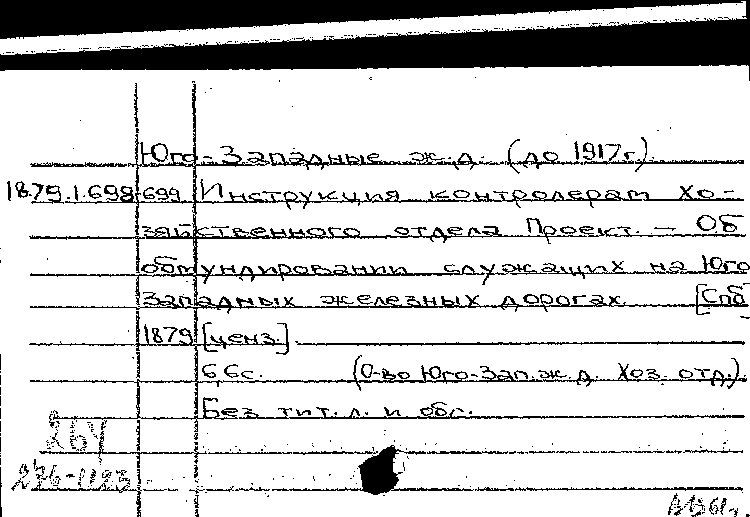 Юго-Западные ж.д. (до 1917г.)
18.79.1.698-699 Инструкция контролерам Хо-
зяйственного отдела Проект. — Об
обмундировании служащих на Юго
Западных железных дорогах [Спб
1879 [ценз.].
6,6с. (О-во Юго-Зап.ж.д. Хоз. отд.).
Без тит. л. и обл.
264
276-1123